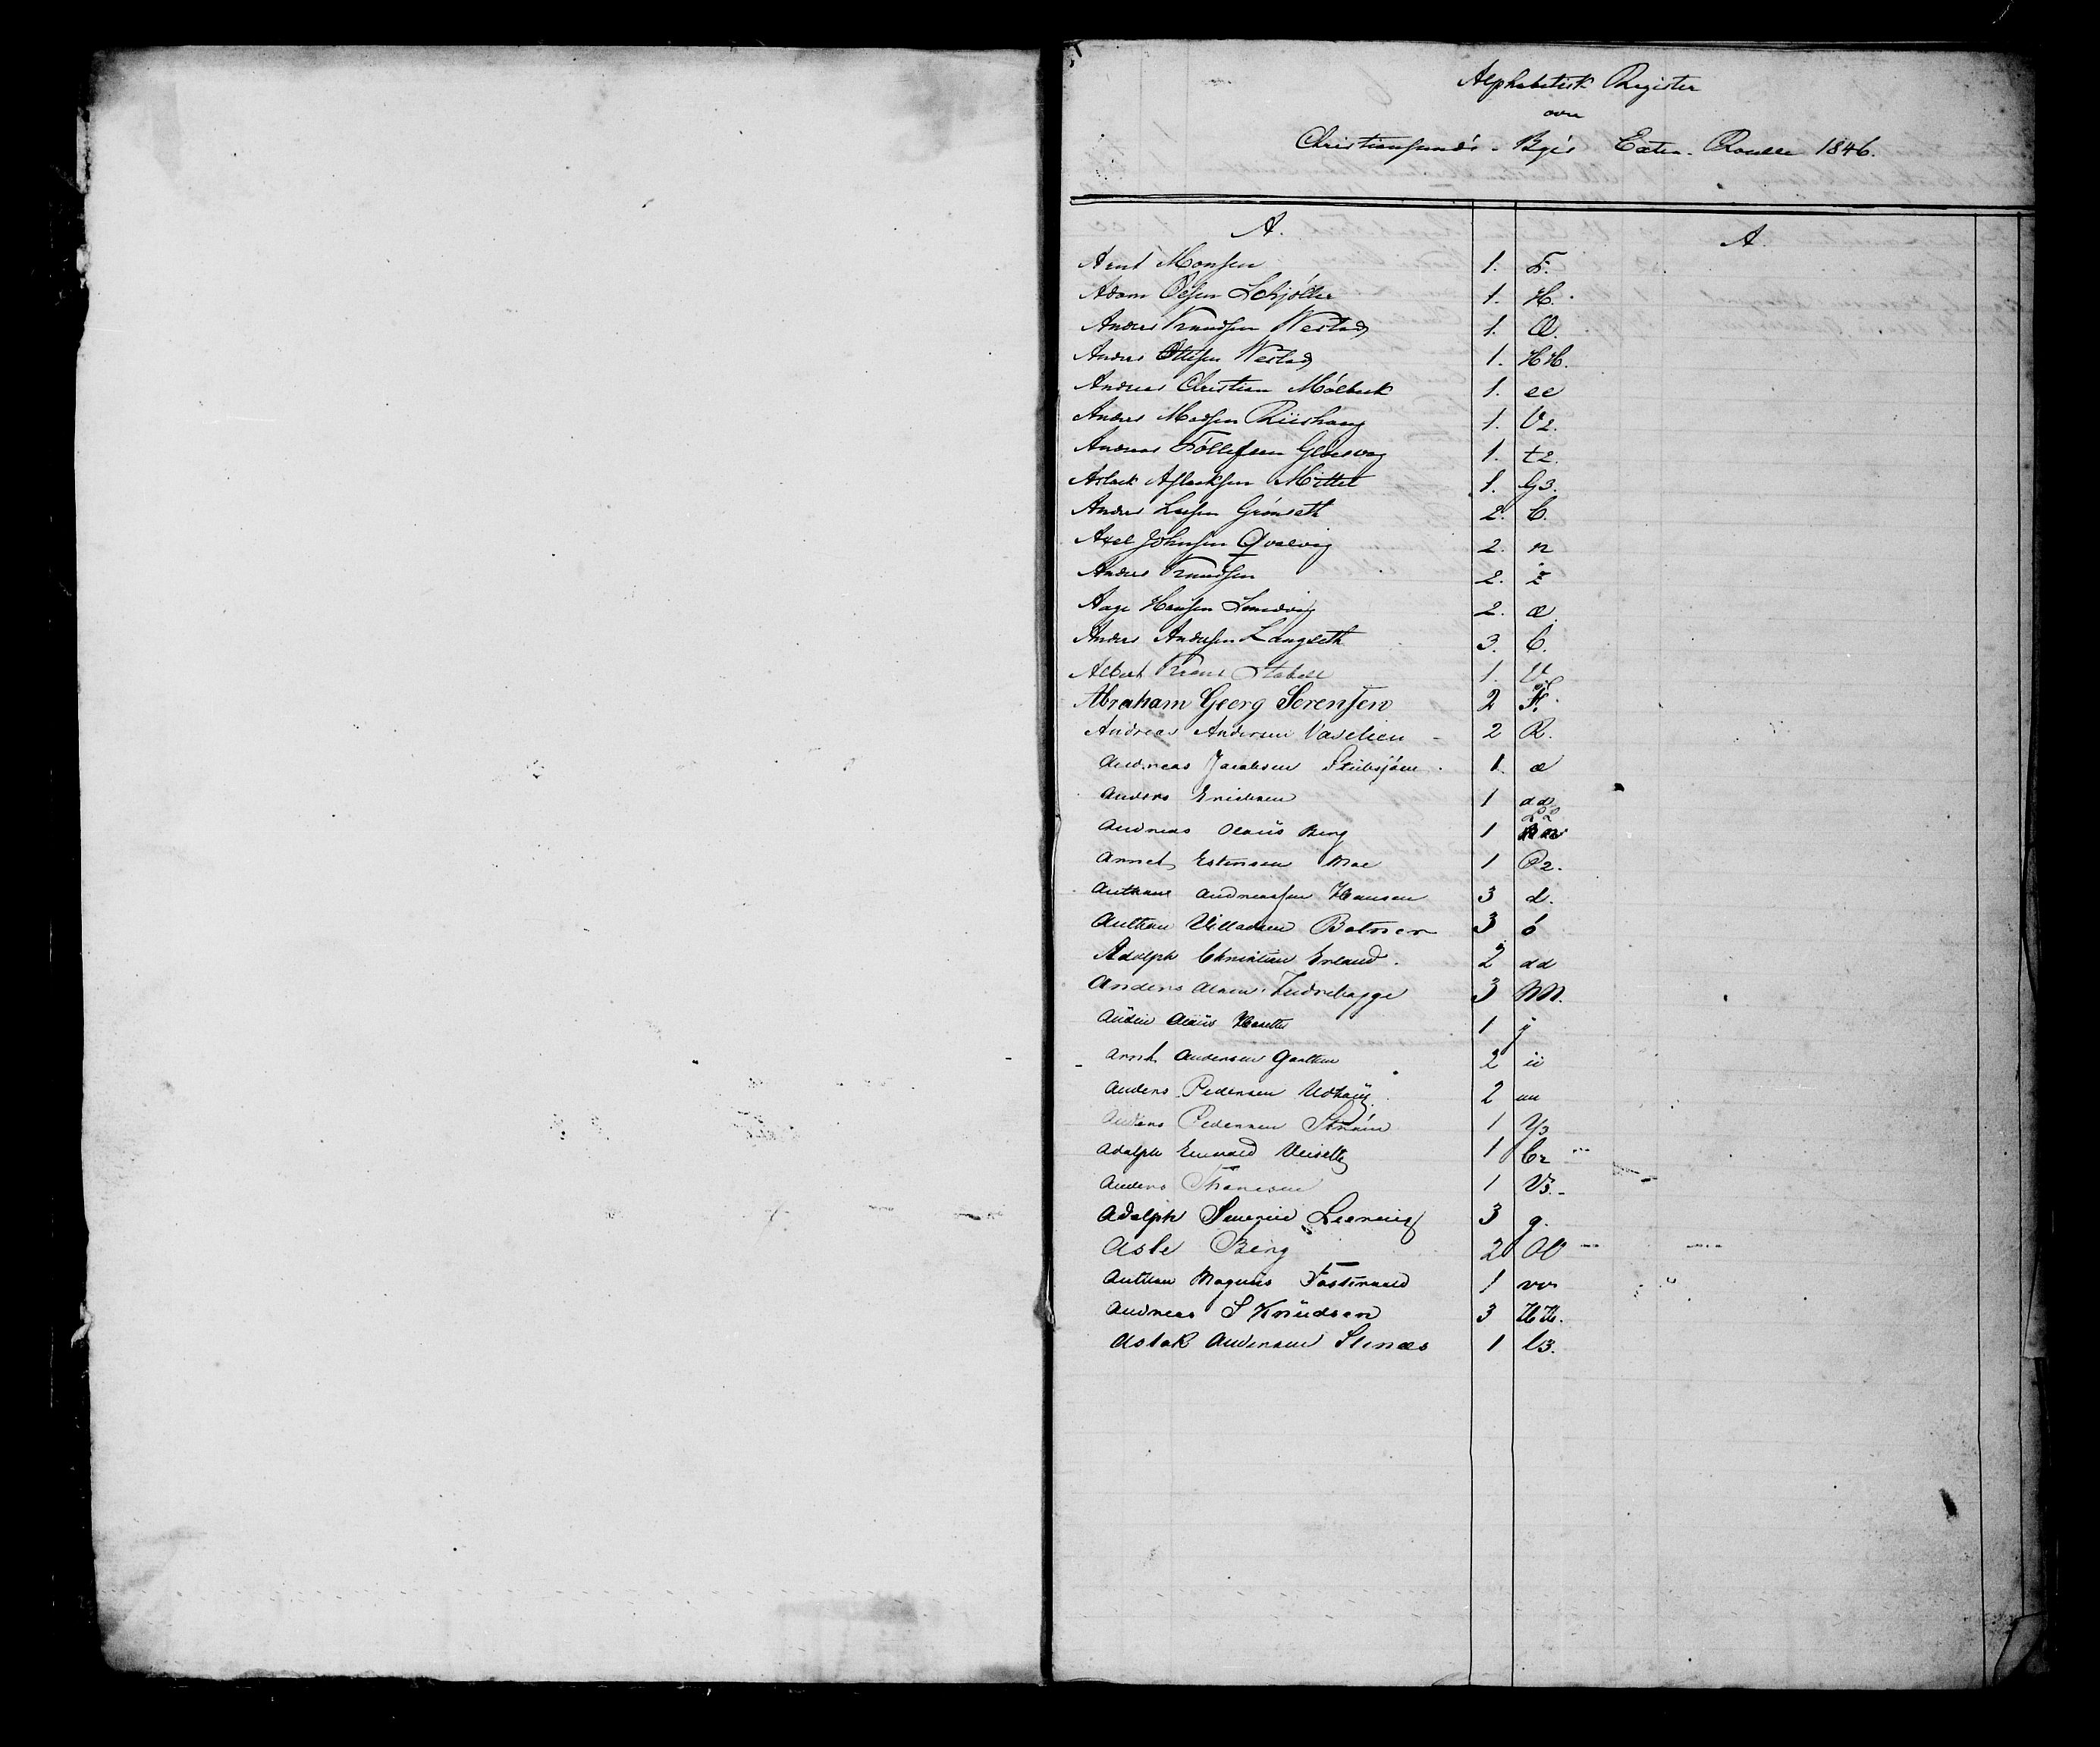 Alphabetisk Register
over
Christiansunds Byes Extra Roulle 1846.
A. A.
Arnt Monsen 1. F.
Adam Olsen Schjölter 1. H.
Anders Knudsen Westad 1. Q.
Anders Ottesen Westad 1. HH.
Andreas Christian Mölbach 1. ee
Anders Madsen Riishaug 1. V2.
Andreas Tøllefsen Gløsvog 1. t2.
Aslack Aslacksen Mittet 1. G3.
Anders Larsen Grönseth 2. C.
Axel Johnsen Qvalvig 2. n
Anders Knudsen 2. z
Aage Hansen Smedvig 2. æ
Anders Andersen Langseth 3. C.
Albert Krane Stabell 1. V
Abraham Georg Sørensen 2
Andreas Andersen Vaselien 2 R.
Andreas Jacobsen Stubsjöen 1. æ
Anders Ericksen 1 dd
Andreas Olaüs Berg 1
Arnet Estensen Moe 1 P2.
Anthon Andreassen Hansen 3 d.
Anthon Villadsen Botner 3 ó
Adolph Christian Erland. 2 dd
Anders Olsen Indrebagge 3 MM.
Olaüs 1 j
Arnt Andersen 2 ii
Anders Pedersen Udhaüg 2 uu
Anders Pedersen Ström 1 Y3
Adolph Edvard 1 C2
Anders Thoresen 1 V3.
Adolph Severin 3 g.
Asle Berg 2 OO
Anthon Magnus Fostervold 1 vv
Andreas S Knüdsen 3 HH.
Aslak Andersen Stenæs 1 l3.